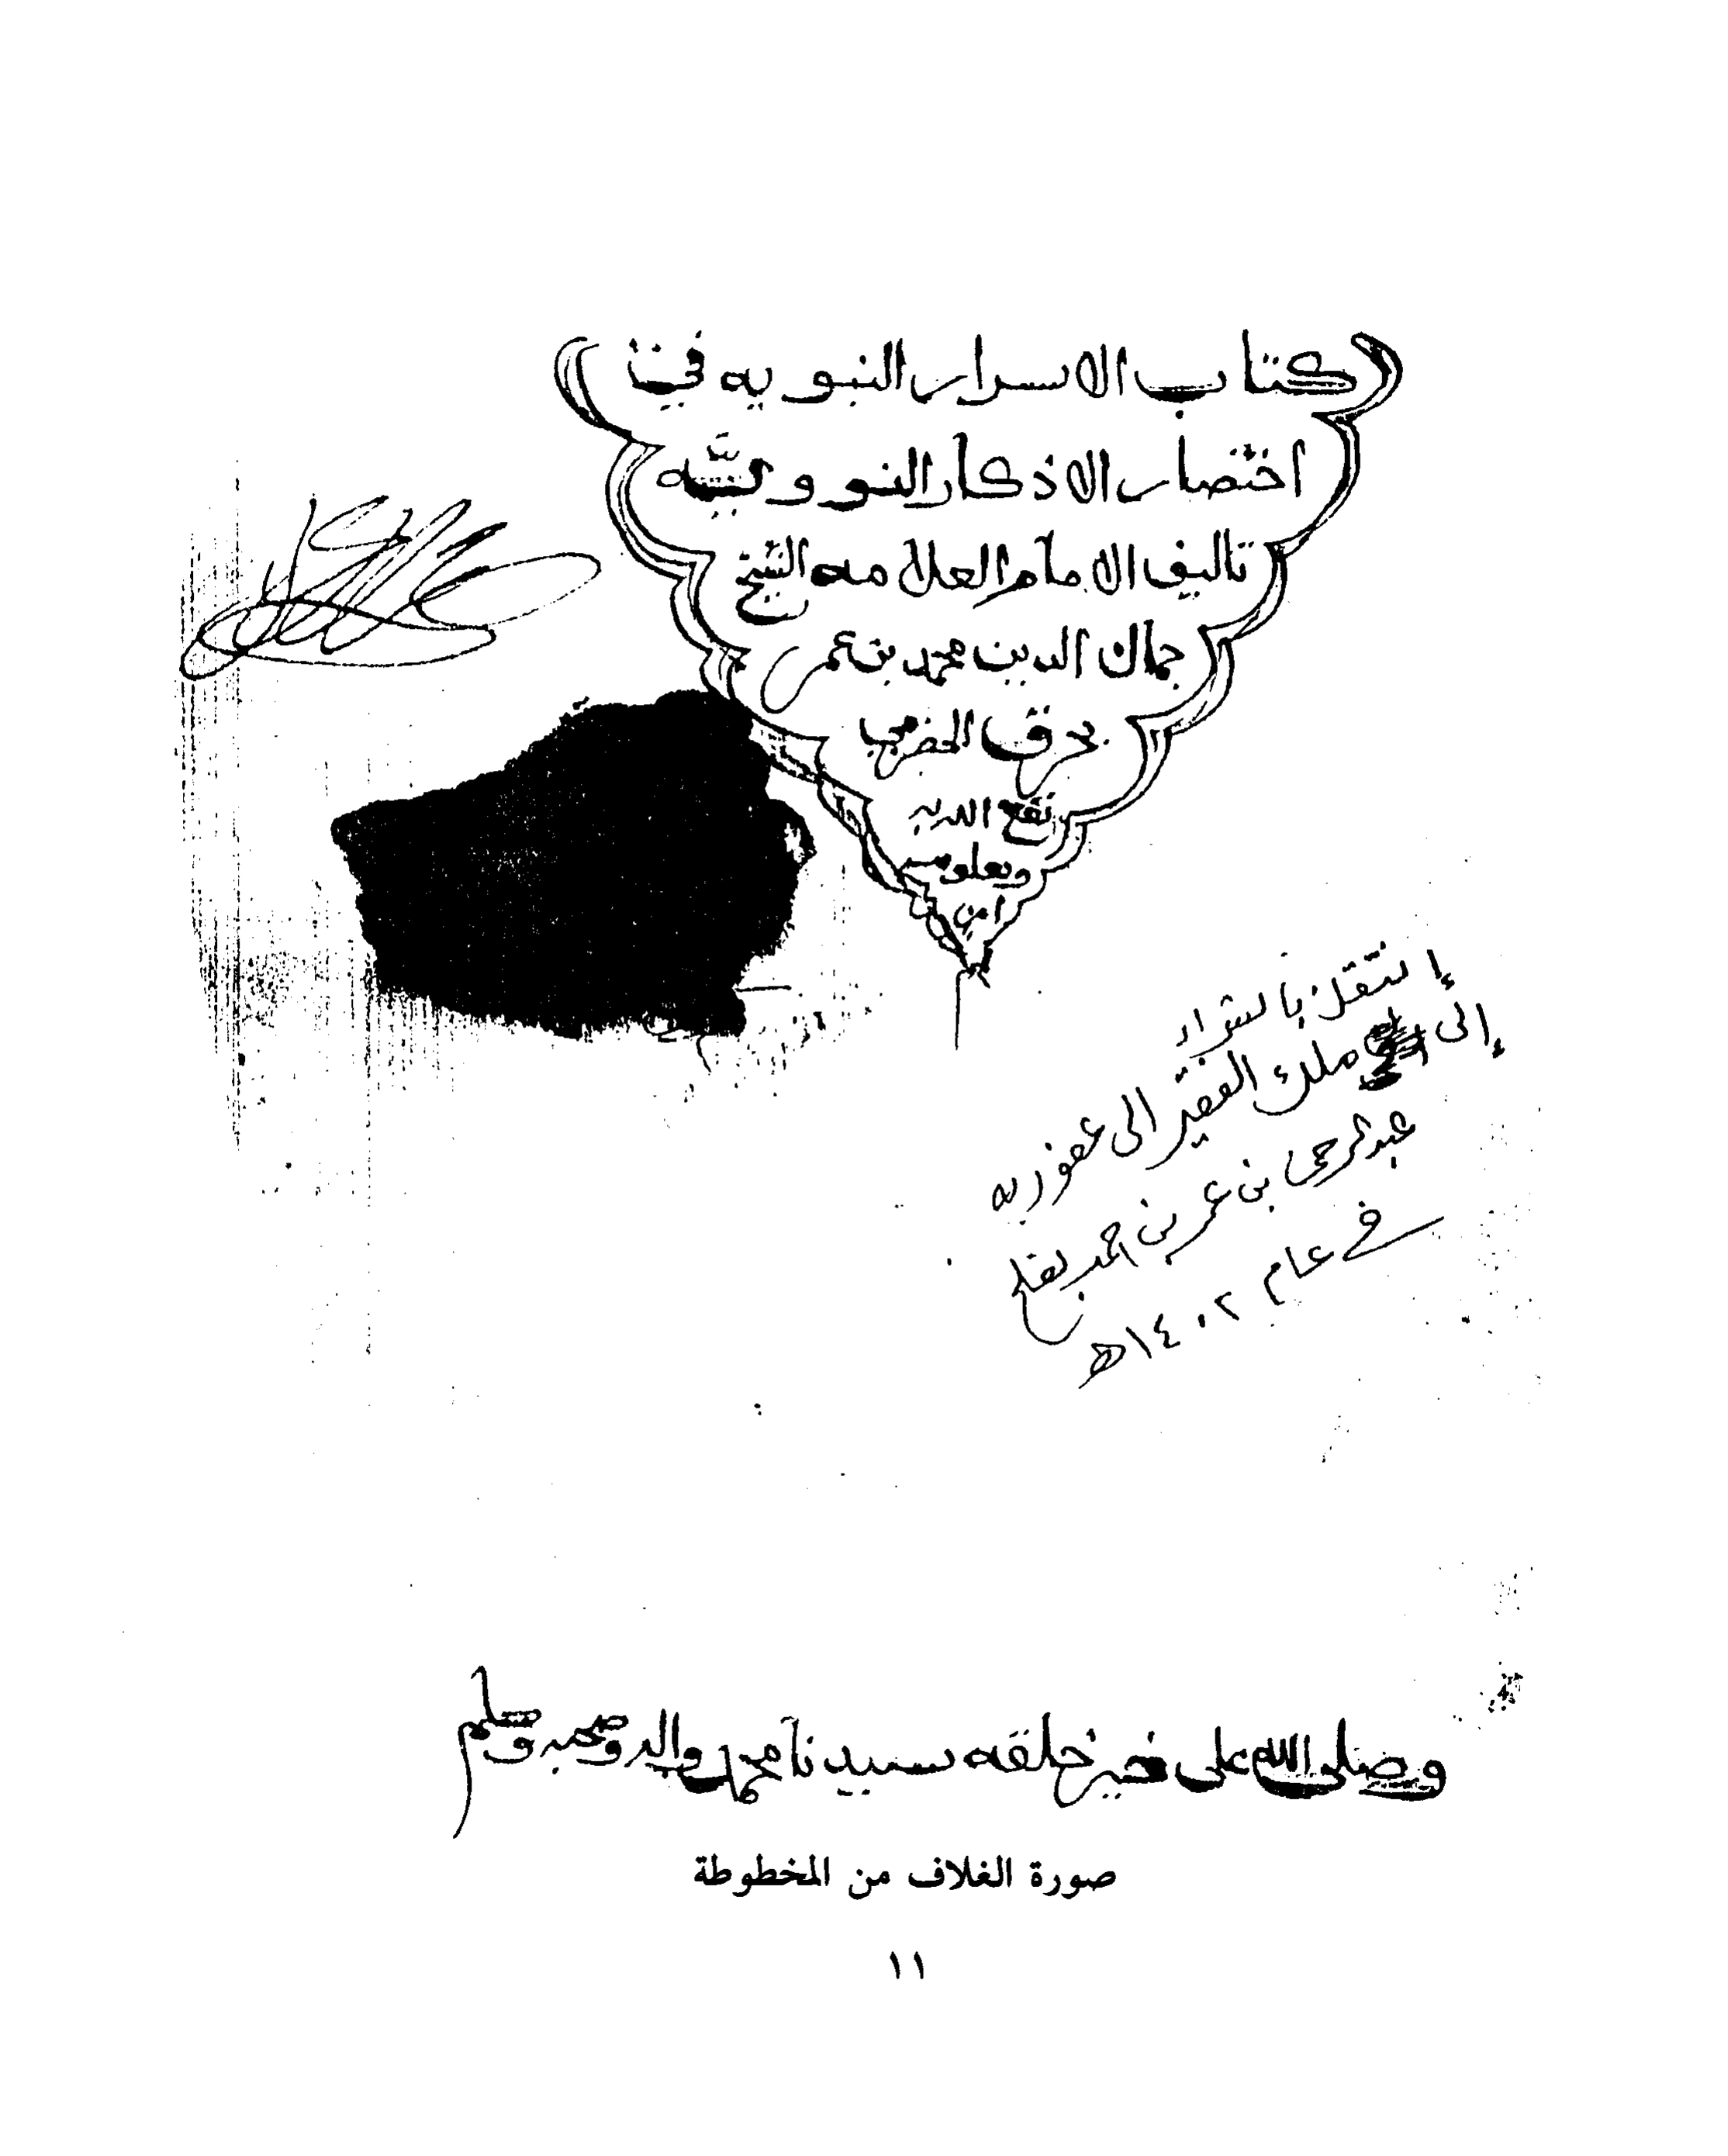 كتاب الاسرار النبويه في
اختصار الاذكار النوويّه
تاليف الامام العلامه الشيخ
جمال الدين محمد بن عمر
بحرق الحضرمي
نفع الله به
وبعلومه
امين
إنتقل بالشراء
إلى ملك الفقير الى عفو ربه
عبدالرحمن بن عمر بن احمد
في عام ١٤٠٢ه
وصلى الله على خير خلقه سيدنا محمد واله وصحبه وسلم
صورة الغلاف من المخطوطة
١١